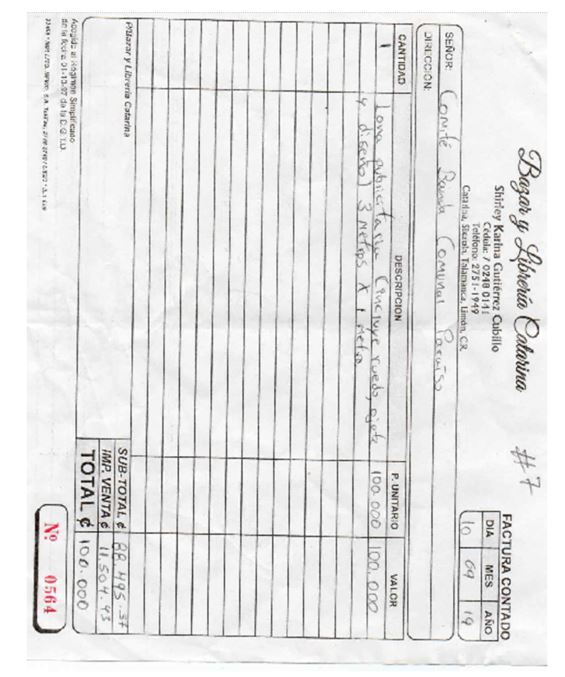 Bazar y Librería Catarina
Shirley Karina Gutiérrez Cubillo
Cédula: 7 0248 0141
Teléfono: 2751-1949
Catarina, Sixaola, Talamanca, Limón, CR.
#7
FACTURA CONTADO
DIA MES AÑO
10 09 19
SEÑOR: Comité Banda Comunal Paraíso
DIRECCIÓN:
CANTIDAD DESCRIPCION P. UNITARIO VALOR
1 Lona publicitaria (incluye ruedo, ojete 100.000 100.000
y diseño) 3 Metros x 1 metro
P/Bazar y Librería Catarina
SUB-TOTAL ¢ 88.495.57
IMP. VENTA ¢ 11.504.43
TOTAL ¢ 100.000
Acogido al Régimen Simplificado
de la fecha 01-10-97 de la D.G.T.D
Nº 0564